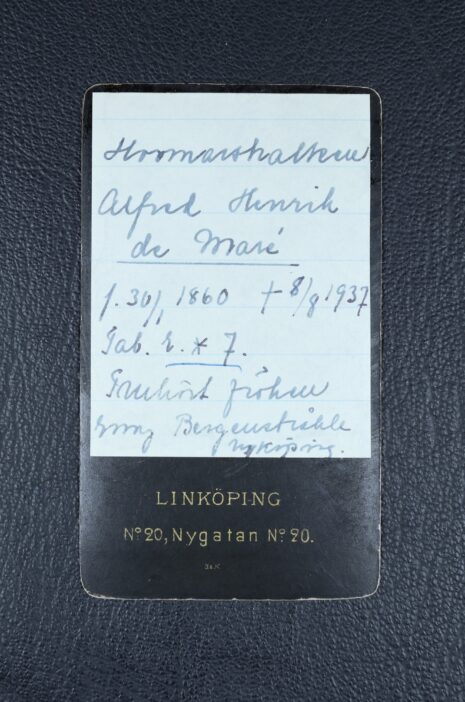 Hovmarskalken
Alfred Henrik
de Maré
f. 30/1 1860 † 8/8 1937
Tab. 2. * 7.
Tillhört fröken
Bergenstråhle
Nyköping.
LINKÖPING
Nº 20, Nygatan Nº 20.